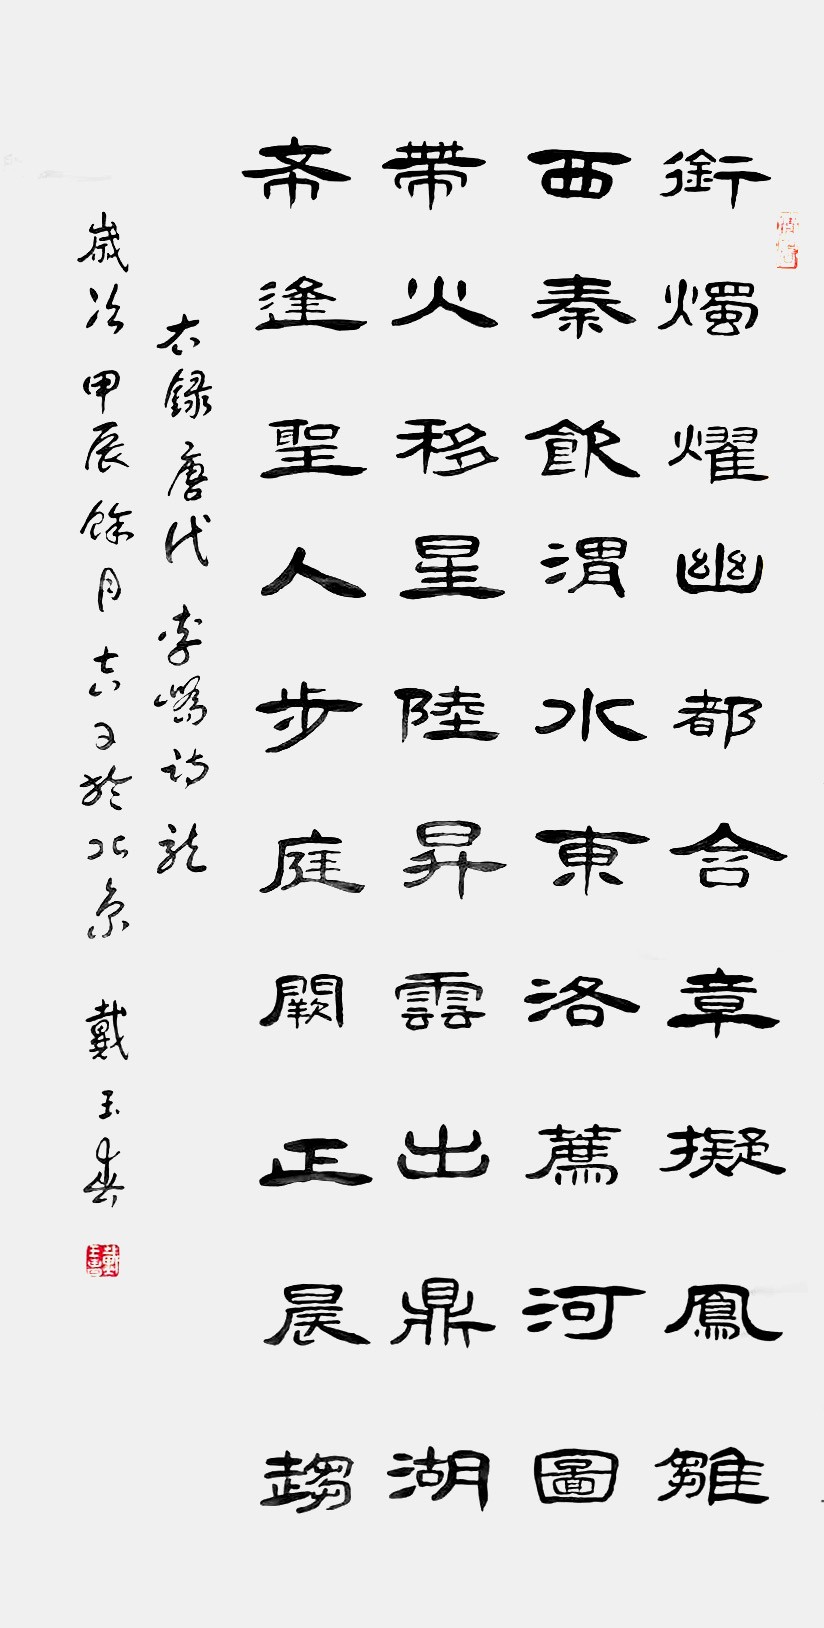 銜燭燿幽都含章擬鳳雛
西秦飲渭水東洛薦河圖
帶火移星陸昇雲出鼎湖
希逢聖人步庭闕正晨趨
右録唐代李嶠詩龍
歲次甲辰餘月吉日於北京 戴玉春